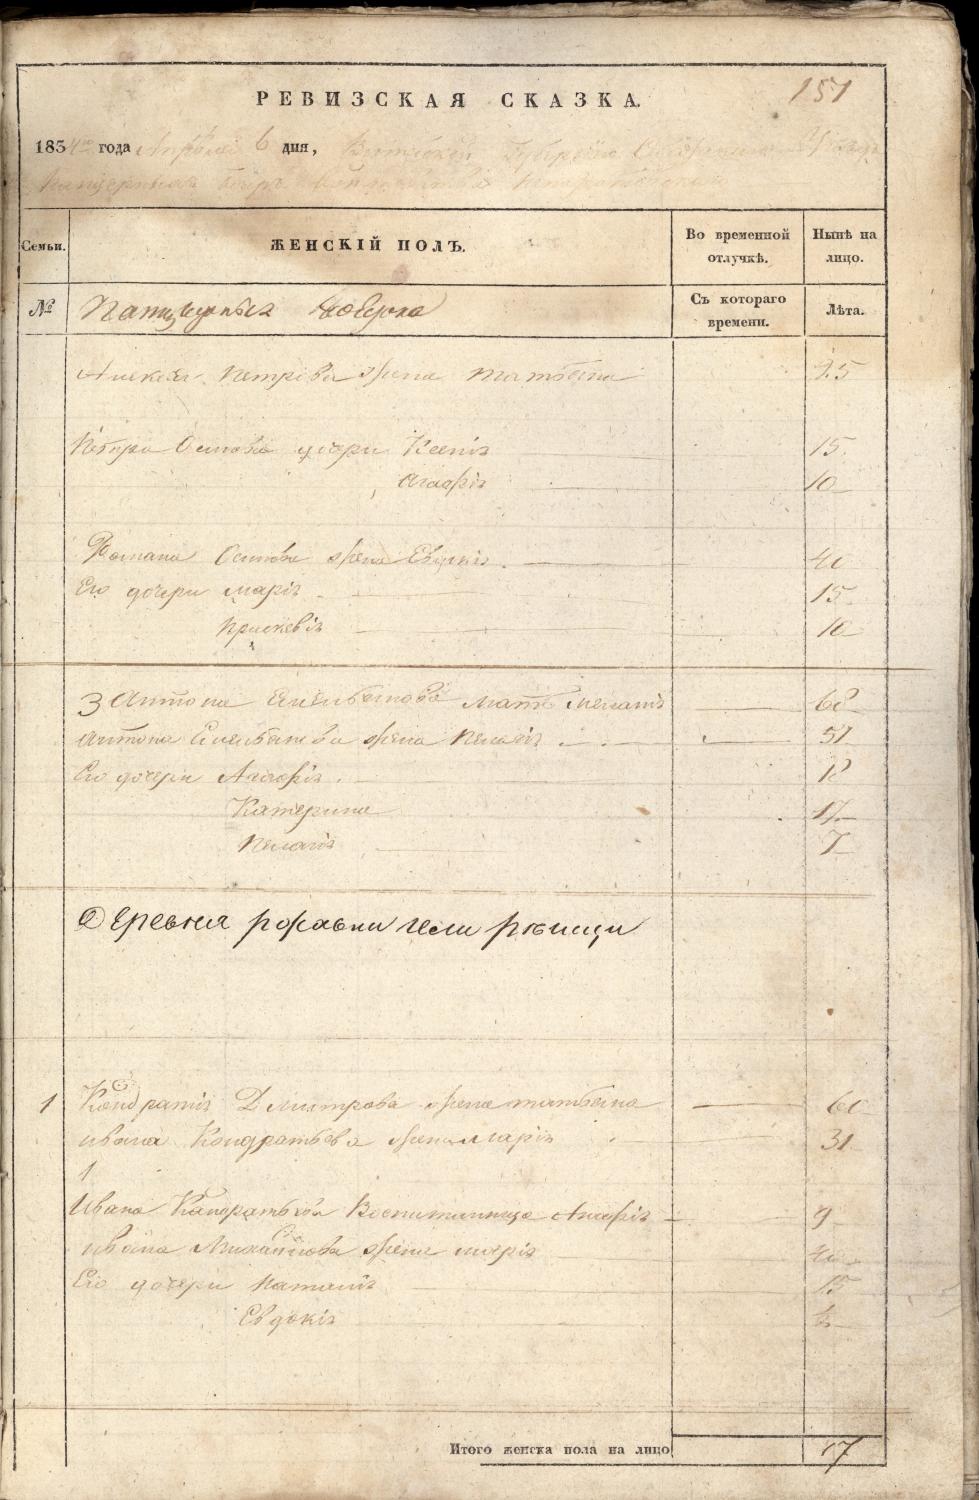 151
РЕВИЗСКАЯ СКАЗКА.
1834 года Апреля 6 дня, Витебской Губернии
Семьи.
ЖЕНСКІЙ ПОЛЪ.
Во временной отлучкѣ.
Нынѣ на лицо.
№
Съ котораго времени.
Лѣта.
Алексея Петрова жена татьяна 25
Петра Осипова дочери Ксенія 15
Агафія 10
Романа Осипова жена Евдокія 40
Его дочери марія 15
Прасковія 10
3 Антона Емельянова мать меланія 68
Антона Емельянова жена Пелагія 51
Его дочери Агафія 18
Катерина 17
Пелагія 7
Деревня
1 Кондратія Дмитрова жена татьяна 60
ивана Кондратьева жена Марія 31
1
Ивана Кондратьева Воспитанница Агафія 9
ивана Михайлова жена марія 40
Его дочери Наталія 15
Евдокія
Итого женска пола на лицо 17